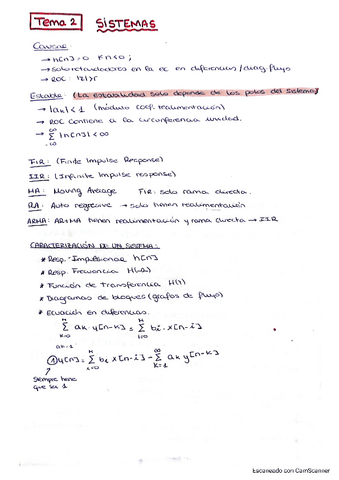 Tema 2 SISTEMAS
Causal:
→ h[n]=0 ∀n<0;
→ solo retardadores en la ec en diferencias/diag. flujo
→ ROC: |z|>r
Estable: (La estabilidad solo depende de los polos del sistema)
→ |ak| < 1 (módulo coef. realimentación)
→ ROC contiene a la circunferencia unidad.
→ ∑ |h[n]| < ∞
FIR: (Finite Impulse Response)
IIR: (Infinite Impulse response)
MA: Moving Average FIR: solo rama directa.
RA: Auto regresive → solo tienen realimentación
ARMA: AR+MA tienen realimentación y rama directa → IIR
CARACTERIZACIÓN DE UN SISTEMA:
* Resp. Impulsional h[n]
* Resp. Frecuencia H(Ω)
* Función de transferencia H(z)
* Diagramas de bloques (grafos de flujo)
* Ecuación en diferencias.
∑ ak · y[n-k] = ∑ bi · x[n-i]
k=0 i=0
a0=1
① y[n] = ∑ bi x[n-i] - ∑ ak y[n-k]
i=0 k=1
siempre tiene
que ser 1
Escaneado con CamScanner